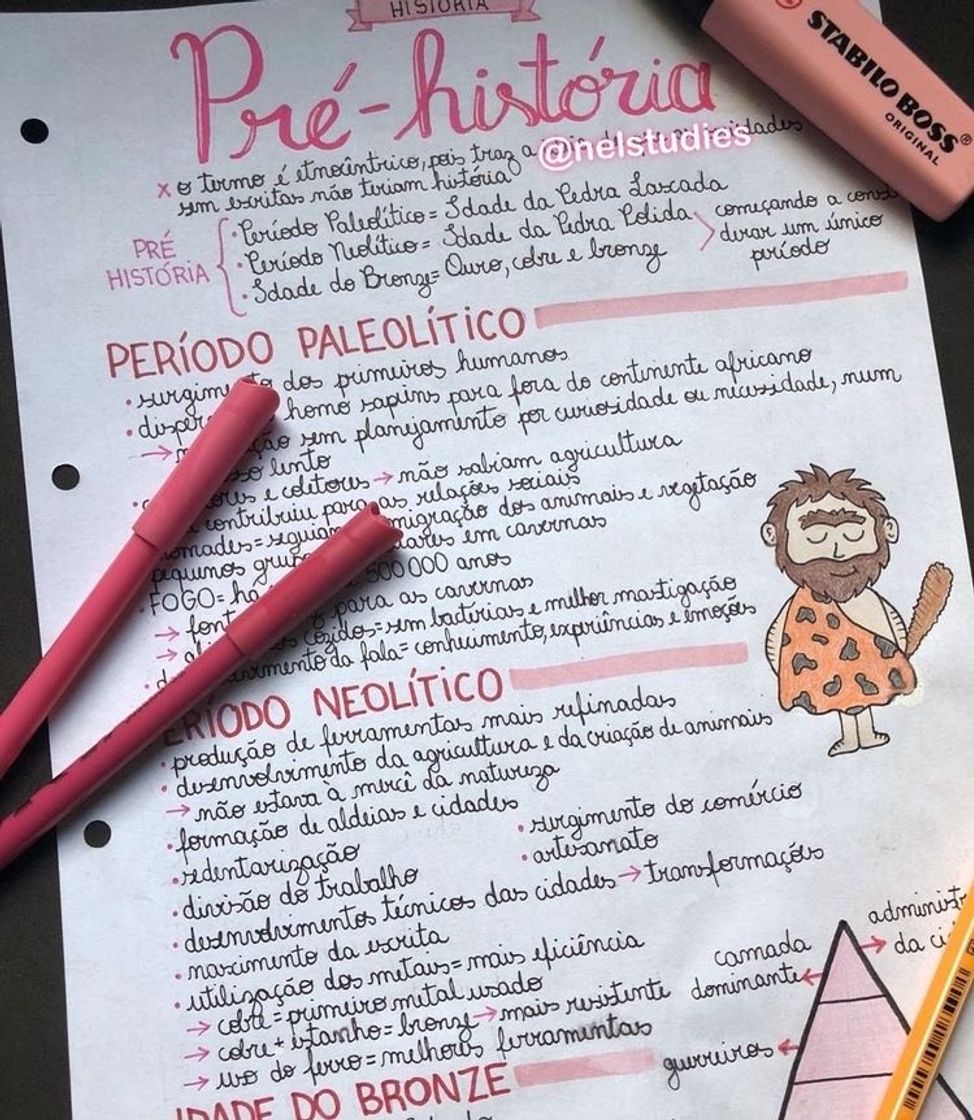 HISTÓRIA
Pré-história
STABILO BOSS®
ORIGINAL
@nelstudies
x o termo é etnocêntrico, pois traz a
sem escritas não teriam história
PRÉ
HISTÓRIA
• Período Paleolítico = Idade da Pedra Lascada
• Período Neolítico = Idade da Pedra Polida
• Idade do Bronze = Ouro, cobre e bronze
começando a consi
derar um único
período
PERÍODO PALEOLÍTICO
• surgimento dos primeiros humanos
• homo sapiens para fora do continente africano
→ sem planejamento por curiosidade ou necessidade, num
lento
• e coletores → não sabiam agricultura
contribuiu para as relações sociais
nômades = seguiam migração dos animais e vegetação
pequenos em cavernas
• FOGO = há 500 000 anos
→ para as cavernas
→ cozidos = sem bactérias e melhor mastigação
• da fala = conhecimento, experiências e emoções
PERÍODO NEOLÍTICO
• produção de ferramentas mais refinadas
• desenvolvimento da agricultura e da criação de animais
→ não estava à mercê da natureza
• formação de aldeias e cidades
• sedentarização
• surgimento do comércio
• artesanato
• divisão do trabalho
• desenvolvimentos técnicos das cidades → transformações
• nascimento da escrita
• utilização dos metais = mais eficiência
→ cobre = primeiro metal usado
→ cobre + estanho = bronze → mais resistente
→ uso do ferro = melhores ferramentas
administ
da ci
camada
dominante
guerreiros
IDADE DO BRONZE